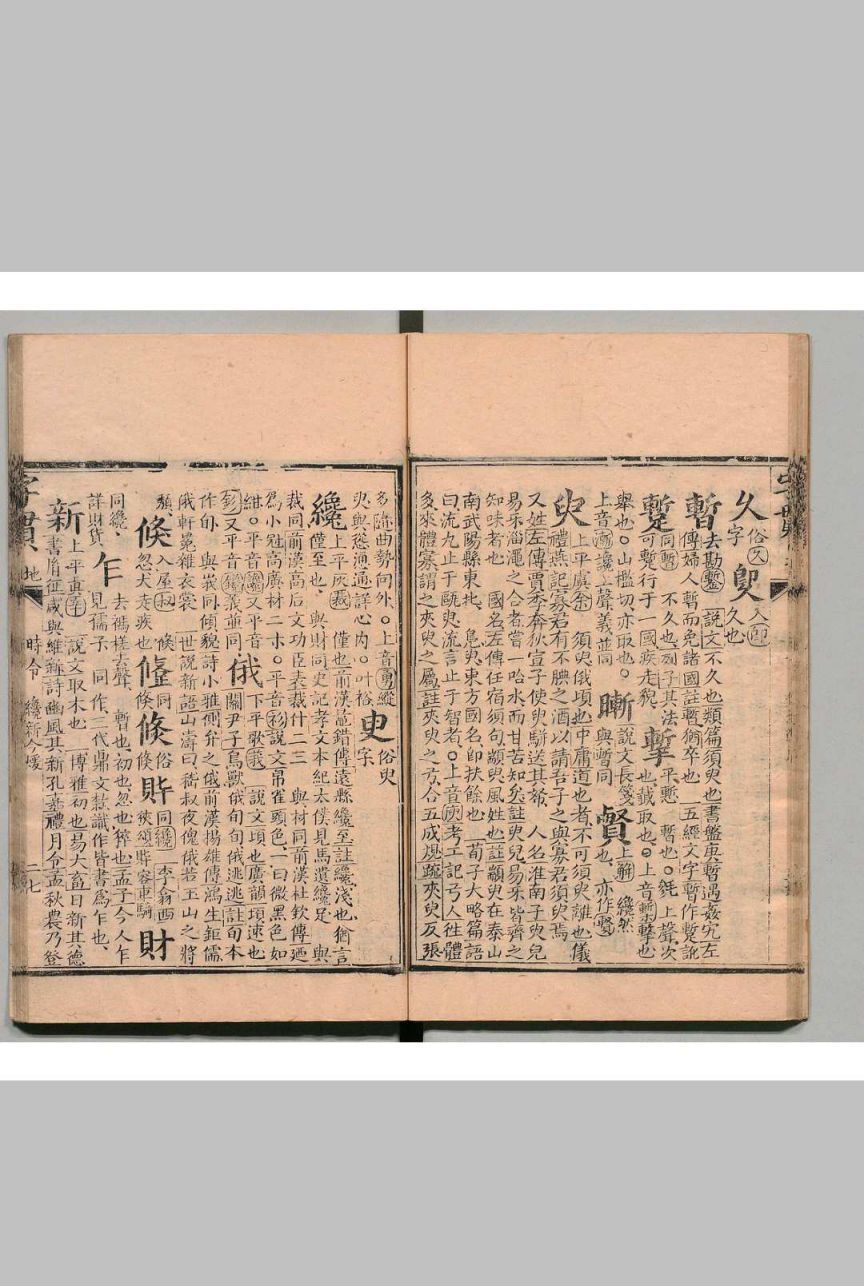 久 俗久字 㬰 入 久也
暫 去勘蹔 說文不久也類篇須臾也書盤庚暫遇姦宄左
傳婦人暫而免諸國註暫猶卒也 五經文字暫作蹔訛
蹔 同暫 不久也列子其法 平慙 暫也○ 上聲次
可蹔行于一國疾走貌 也 取也○上音 也
舉也○山檻切亦取也 說文長箋 上 纔然
上音 上聲義並同 與暫同 也亦作
臾 上平虞余 須臾俄頃也中庸道也者不可須臾離也儀
禮燕記寡君有不腆之酒以請吾子之與寡君須臾焉
又姓左傳賈季奔狄宣子使臾駢送其帑 人名淮南子臾兒
易牙淄澠之合者嘗一哈水而甘苦知矣註臾兒易牙皆齊之
知味者也 國名左傳任宿須句顓臾風姓也註顓臾在泰山
南武陽縣東北 臾東方國名卽扶餘也 荀子大略篇語
曰流九止于甌臾流言止于智者○上音 考工記弓人往體
多來體寡謂之夾臾之屬註夾臾之弓合五成規 夾臾反張
多隨曲勢向外○上音勇縱
臾與慫慂通詳心內○叶裕 㕜 俗臾字
纔 上平灰裁 僅也前漢鼂錯傳遠縣纔至註纔淺也猶言
僅至也 與財同史記孝文本紀太僕見馬遺纔足 與
裁同前漢高后文功臣表裁什二三 與材同前漢杜欽傳迺
爲小冠高廣材二寸○平音衫說文帛雀頭色一曰微黑色如
紺○平音 又平音 俄 下平歌 說文頃也廣韻項速也
又平音 義並同 關尹子鳥獸俄旬旬俄逃逃註旬本
作㫬 與峩同傾貌詩小雅側弁之俄前漢揚雄傳鴻生鉅儒
俄軒冕雜衣裳 世說新語山濤曰嵇叔夜傀俄若玉山之將
頹 倏 入屋叔 倏 同 俗 同纔 李翕西
忽犬走疾也 倏 倏 狹頌 容車騎 財
同纔 乍 去禡槎去聲 暫也初也忽也猝也孟子今人乍
詳財貨 見孺子 同作三代鼎文款識作皆書爲乍也
新 上平真辛 說文取木也 博雅初也易大畜日新其德
書胤征咸與維新詩豳風其新孔嘉禮月令孟秋農乃登
字貫 地 時令 纔新今煖 二七